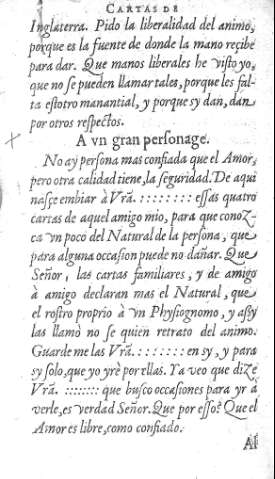 CARTAS DE
Inglaterra. Pido la liberalidad del animo,
porque es la fuente de donde la mano reçibe
para dar. Que manos liberales he visto yo,
que no se pueden llamar tales, porque les fal-
ta estotro manantial, y porque sy dan, dan
por otros respectos.
A vn gran personage.
No ay persona mas confiada que el Amor,
pero otra calidad tiene, la seguridad. De aqui
nasçe embiar à Vrã. : : : : : : : : : essas quatro
cartas de aquel amigo mio, para que conoz-
ca vn poco del Natural de la persona, que
para alguna occasion puede no dañar. Que
Señor, las cartas familiares, y de amigo
à amigo declaran mas el Natural, que
el rostro proprio à vn Physiognomo, y assy
las llamò no se quien retrato del animo.
Guardeme las Vrã. : : : : : : : : en sy, y para
sy solo, que yo yrè por ellas. Ya veo que dize
Vrã. : : : : : : : : que busco occasiones para yr à
verle, es verdad Señor. Que por esso? Que el
Amor es libre, como confiado.
Al